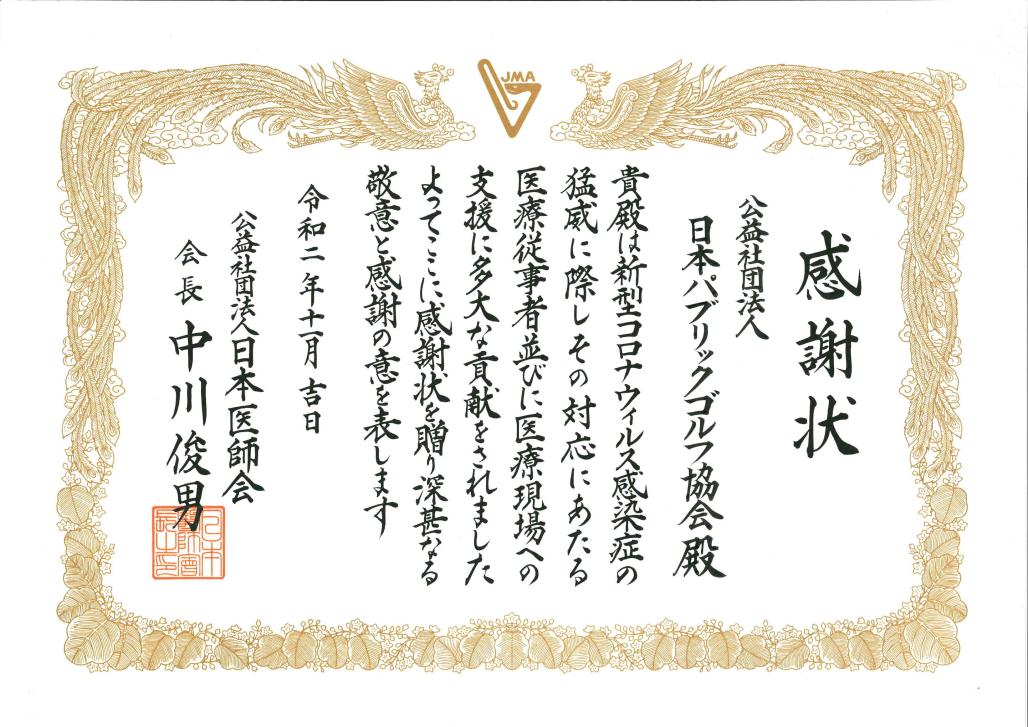 JMA
感謝状
公益社団法人
日本パブリックゴルフ協会殿
貴殿は新型コロナウィルス感染症の
猛威に際しその対応にあたる
医療従事者並びに医療現場への
支援に多大な貢献をされました
よってここに感謝状を贈り深甚なる
敬意と感謝の意を表します
令和二年十一月吉日
公益社団法人日本医師会
会長 中川俊男
日本
醫師會
長之印